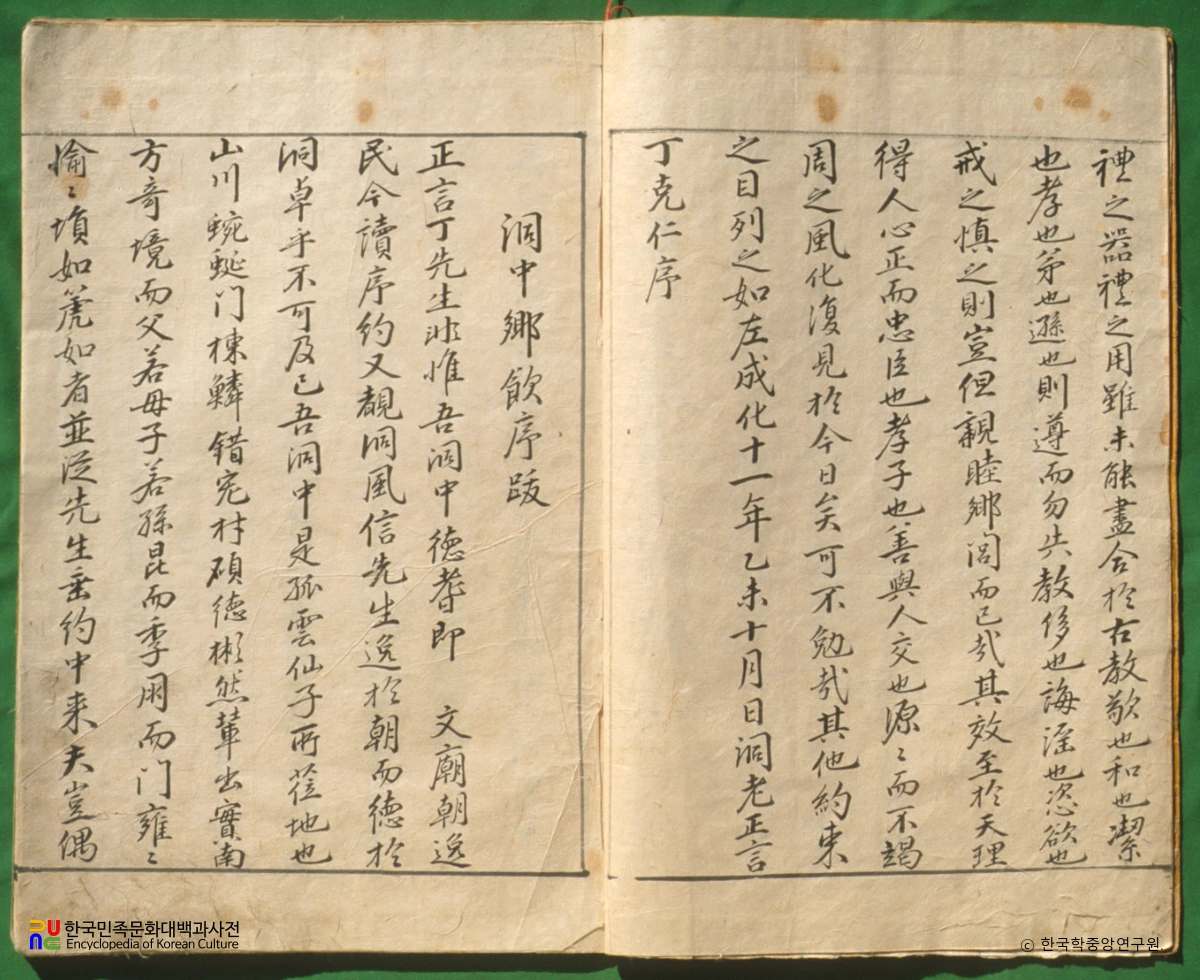 禮之器禮之用雖未能盡合於古敎敬也和也潔
也孝也弟也遜也則遵而勿失教侈也誨淫也恣欲也
戒之愼之則豈但親睦鄕閭而已哉其效至於天理
得人心正而忠臣也孝子也善與人交也源〻而不竭
周之風化復見於今日矣可不勉哉其他約束
之目列之如左成化十一年乙未十月日洞老正言
丁克仁序
洞中鄕飮序跋
正言丁先生非惟吾洞中德耆即 文廟朝逸
民今讀序約又覩洞風信先生逸於朝而德於
洞卓乎不可及已吾洞中是孤雲仙子所莅地也
山川蜿蜒门棟鱗錯宛村碩德彬然輩出實南
方奇境而父若母子若孫昆而季用而门雍〻
愉〻塤如篪如者並從先生垂約中来夫豈偶
한국민족문화대백과사전
Encyclopedia of Korean Culture
© 한국학중앙연구원